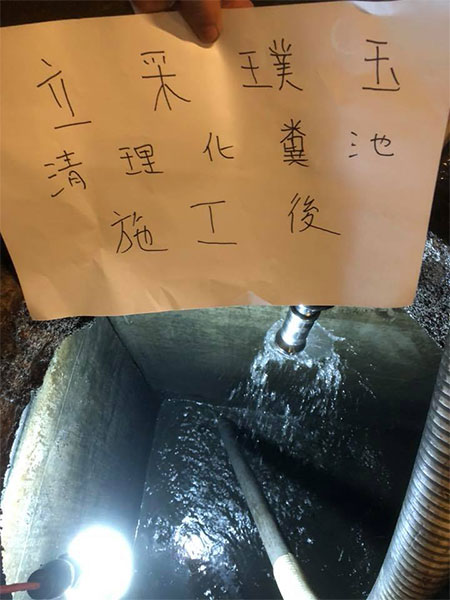 立采璞玉
清理化糞池
施工後